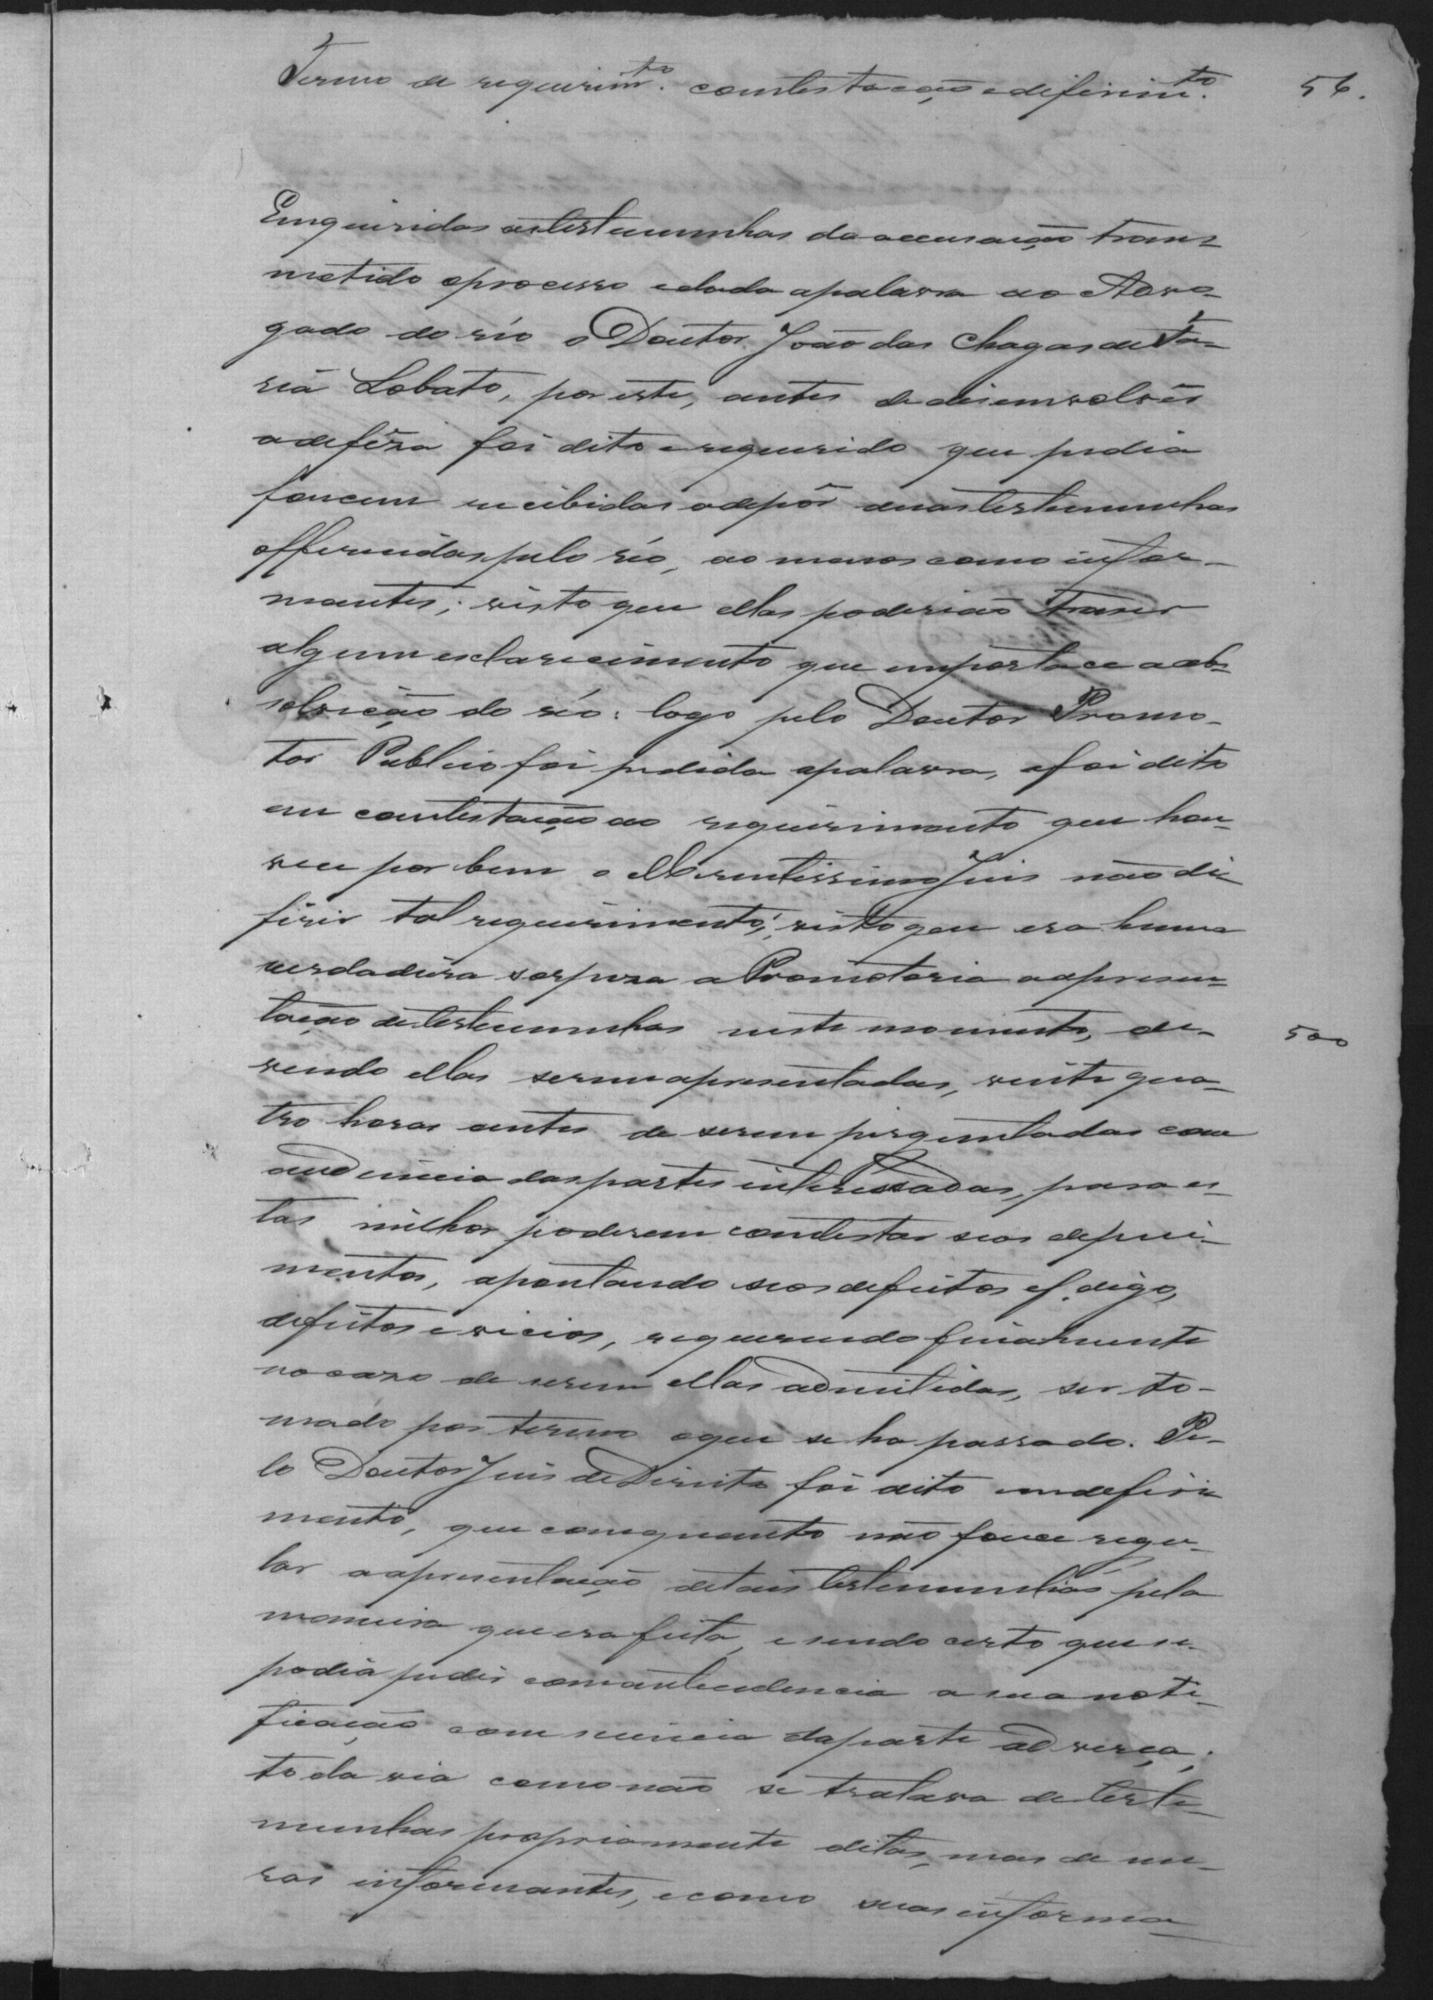 Termo de requerimto. contestação e deferimto.
56.
Emqueridas as testemunhas da accusação trans-
metido o processo e dada a palavra ao Advo-
gado do réo o Doutor João das Chagas de Fa-
ria Lobato, por este, antes de desemvolver
a defêza foi dito e requerido que pedia
foucem recibidas a depôr duas testemunhas
offerecidas pelo réo, ao menos como infor-
mantes; visto que ellas poderião traser
algum esclarecimento que importace a ab-
solvição do réo: logo pelo Doutor Promo-
tor Publico foi pedida a palavra, e foi dito
em contestação ao requerimento que hou-
vece por bem o Meretissimo Juis não di-
firir tal requerimento; visto que era huma
verdadeira sorpreza a Promotoria a apresen-
tação de testemunhas neste momento, de-
500
vendo ellas serem apresentadas, vinte qua-
tro horas antes de serem perguntadas com
audiencia das partes interessadas, para es-
tas milhor poderem contestar seos depui-
mentos, apontando seos defeitos ef. digo,
defeitos e vicios, requerendo finalmente
no cazo de serem ellas admitidas, ser to-
mado por termo o que se ha passado. Pe-
lo Doutor Juis de Direito foi dito em deferi-
mento, que comquanto não fouce regu-
lar a apresentação de tais testemunhas pela
maneira que era feita, e sendo certo que se
podia pedir com antecedencia a sua noti-
ficação com sciencia da parte adverça;
toda via como não se tratava de teste-
munhas propriamente ditas, mas de me-
ros informantes, e como suas informa-